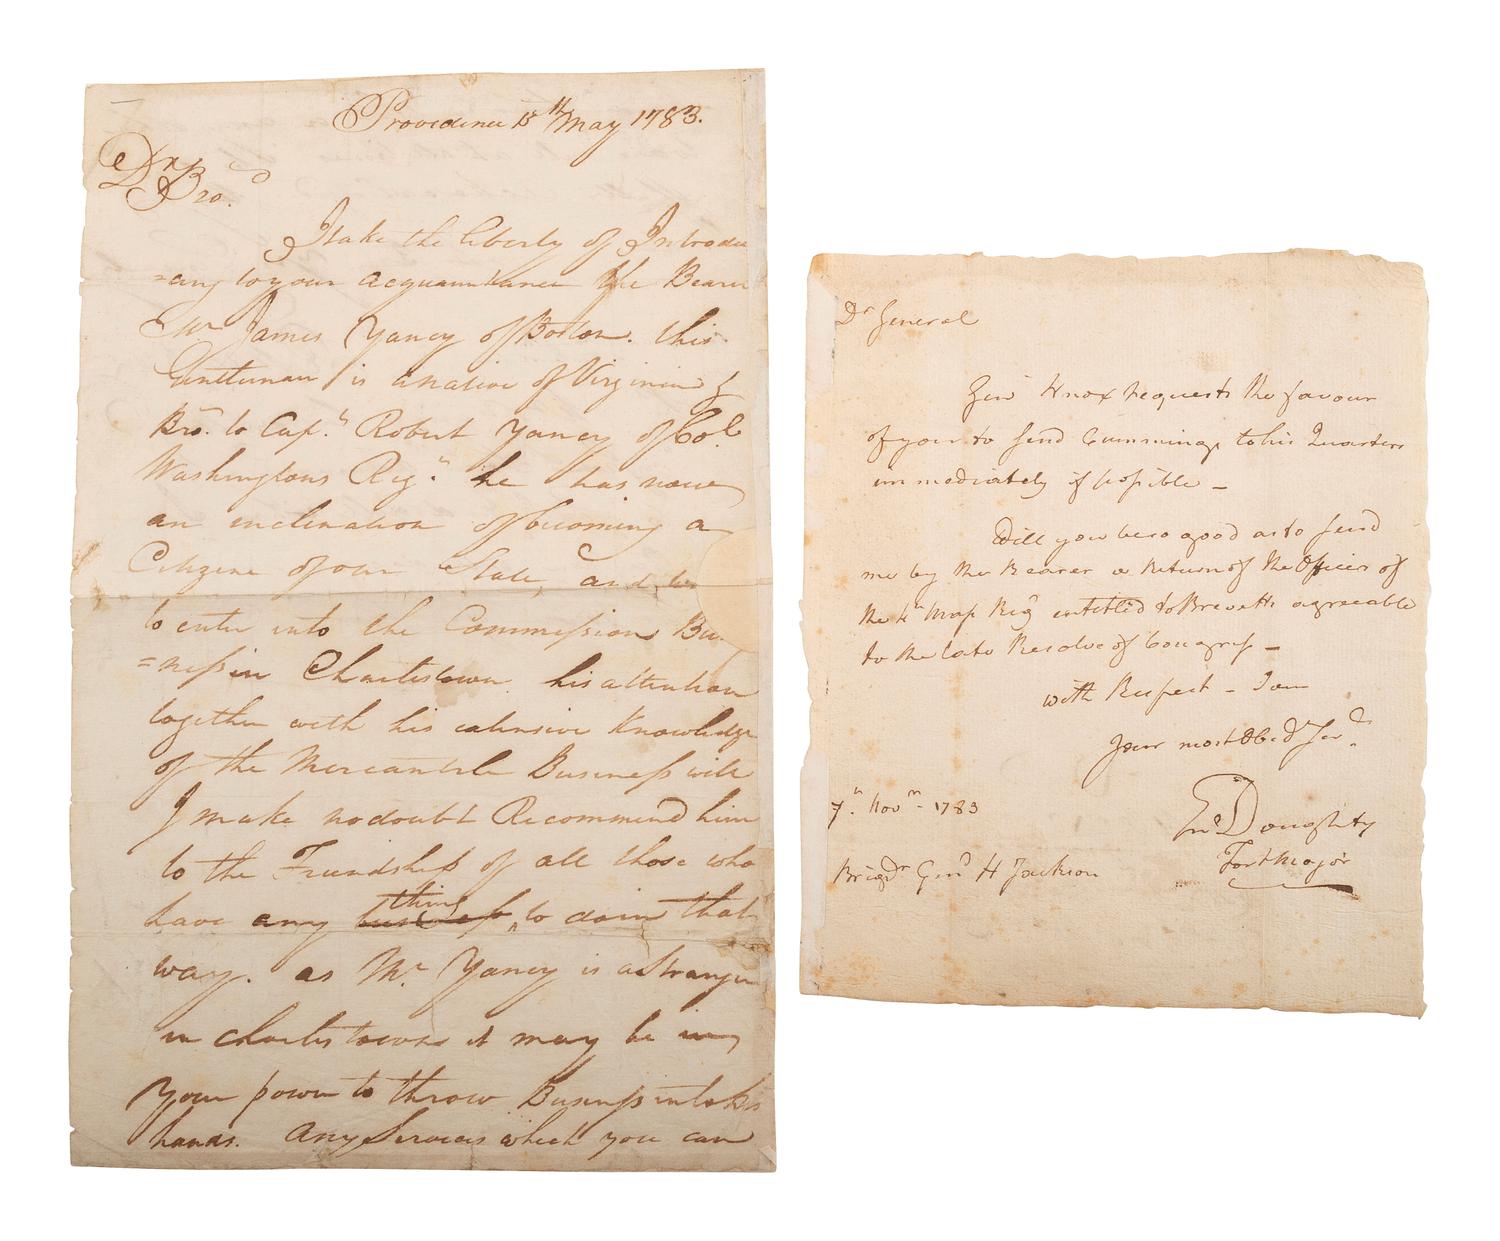 Providence 15th May 1783.
Dr. Bro.
I take the liberty of Introdu
=cing to your acquaintance the Bearer
Mr James Yancy of Boston. this
Gentleman is a native of Virginia &
Bro. to Capt. Robert Yancy of Col.
Washingtons Regt. he has now
an inclination of becoming a
Citizene of our State, and
to enter into the Commission Bu
=ness in Charlestown. his attention
together with his extensive knowledge
of the Mercantile Business will
I make no doubt Recommend him
to the Friendship of all those who
have any business thing to do in that
way. as Mr. Yancy is a Stranger
in Charlestown it may be in
your power to throw Business into his
hands. Any Services which you can
Dr General
Genl Knox requests the favour
of you to send Cummings to his Quarters
immediately if possible –
Will you be so good as to send
me by the Bearer a Return of the Officers of
the 4th Mass Regt entitled to Brevetts agreeable
to the late Resolve of Congress –
with Respect – I am
Your most Obed Servt.
7th. Novm – 1783
Jno Doughty
Fort Major
Brigdr Genl H Jackson